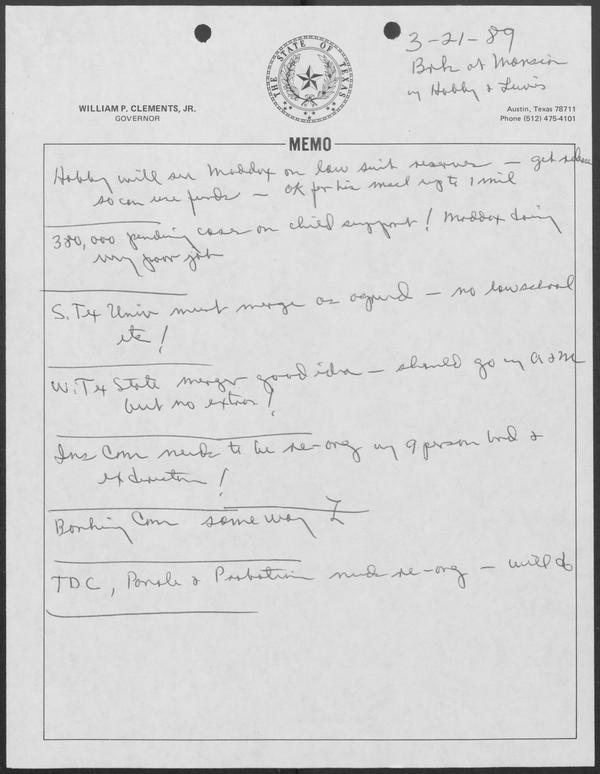 3-21-89
Brk at Mansion
w Hobby & Lewis
THE STATE OF TEXAS
WILLIAM P. CLEMENTS, JR.
GOVERNOR
Austin, Texas 78711
Phone (512) 475-4101
MEMO
Hobby will see Maddox on law suit reserves — get release
so can use funds — OK for his need up to 1 mil
380,000 pending cases on child support! Maddox doing
very poor job
S. Tx Univ must merge as agreed — no law school
etc!
W. Tx State merger good idea — should go w A&M
but no extras!
Ins Com needs to be re-org w 9 person brd &
ex director!
Banking Com same way
TDC, Parole & Probation needs re-org — will do